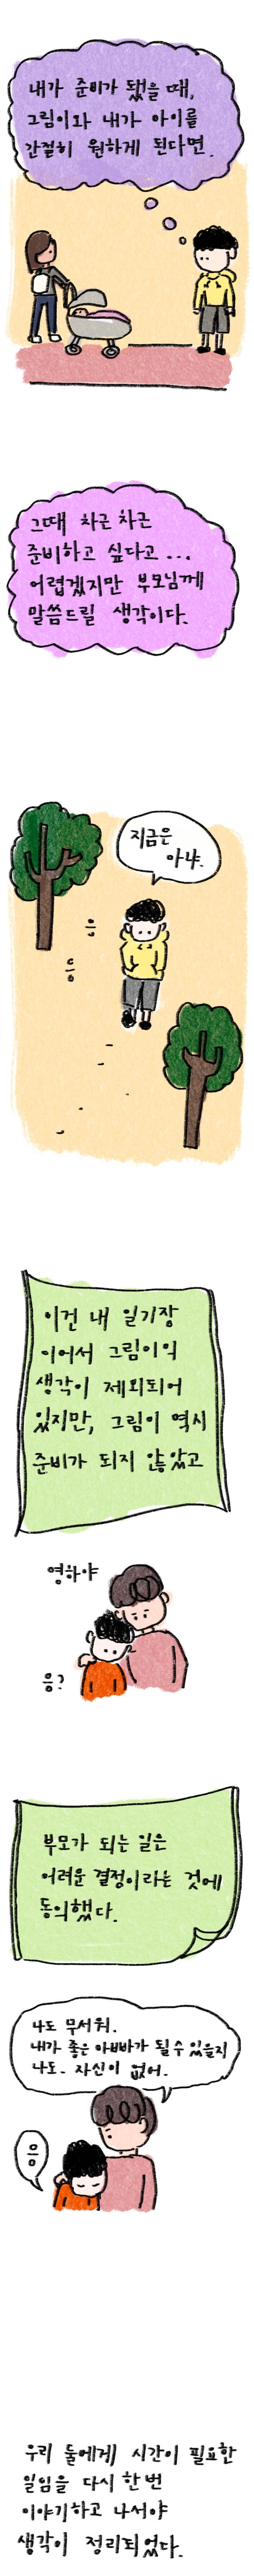 내가 준비가 됐을 때,
그림이와 내가 아이를
간절히 원하게 된다면.
그때 차근차근
준비하고 싶다고...
어렵겠지만 부모님께
말씀드릴 생각이다.
지금은
아냐.
응
응
이건 내 일기장
이어서 그림이의
생각이 제외되어
있지만, 그림이 역시
준비가 되지 않았고
영하야
응?
부모가 되는 일은
어려운 결정이라는 것에
동의했다.
나도 무서워.
내가 좋은 아빠가 될 수 있을지
나도. 자신이 없어.
응
우리 둘에게 시간이 필요한
일임을 다시 한번
이야기하고 나서야
생각이 정리되었다.